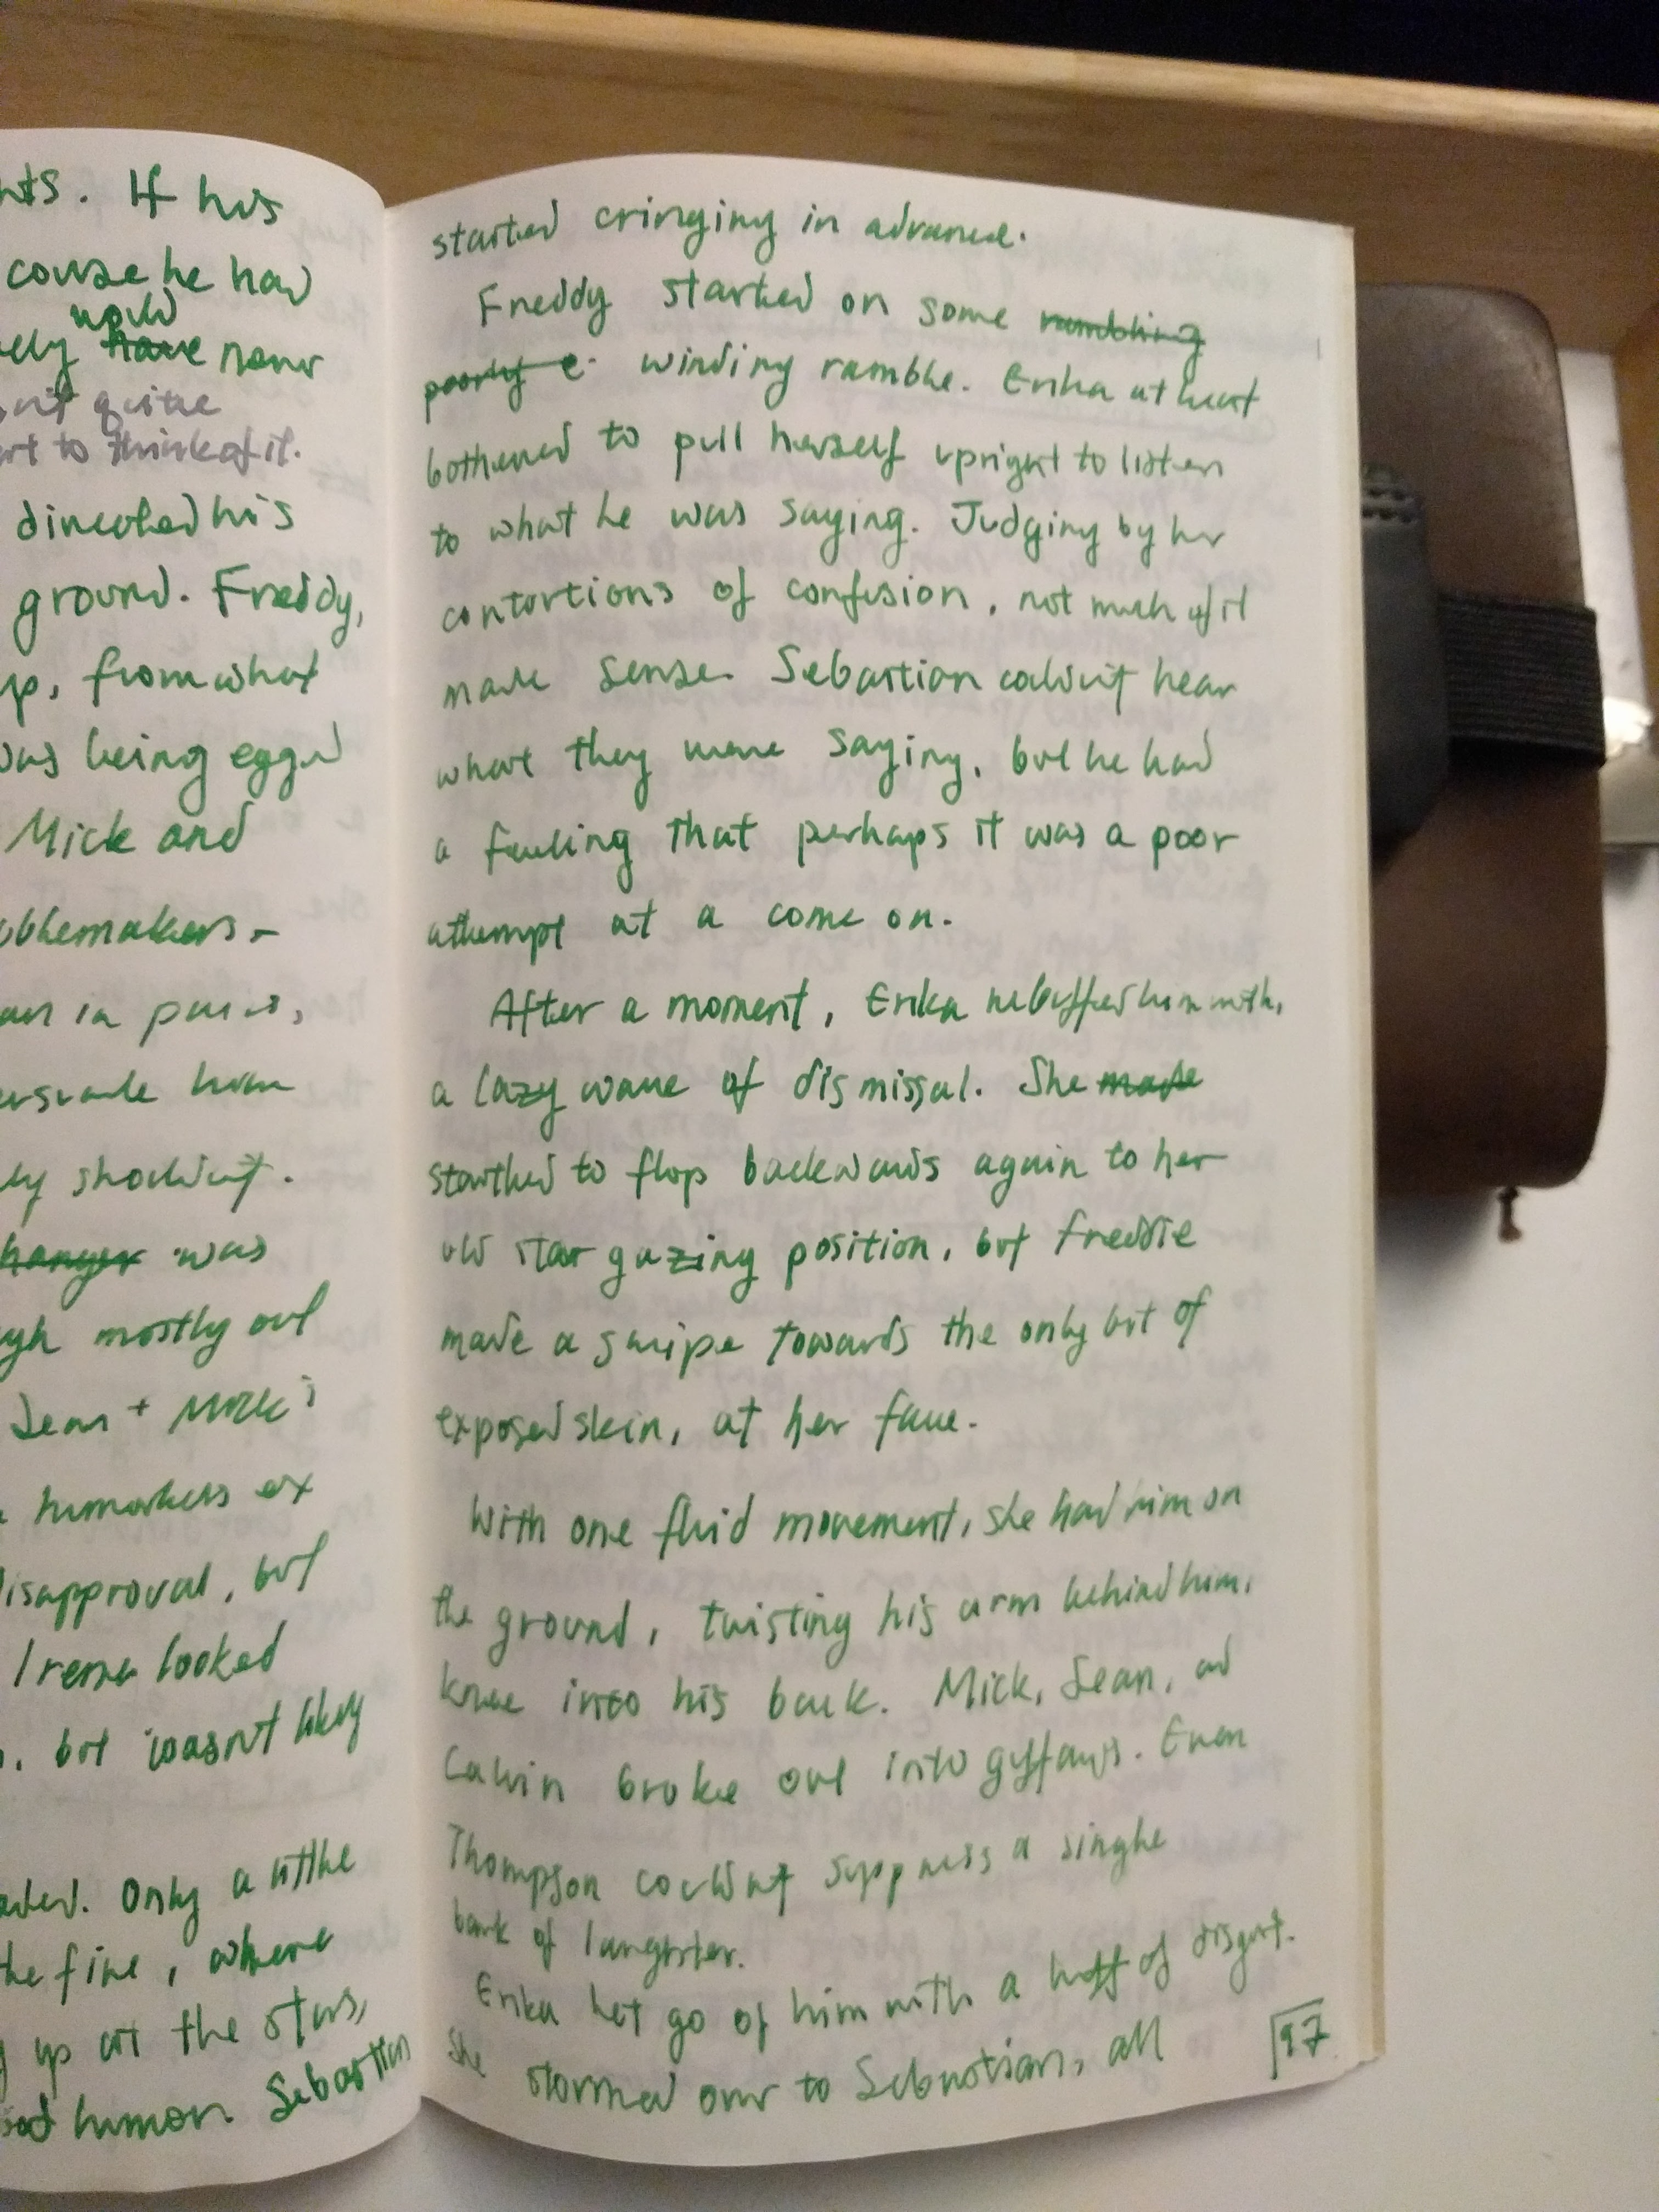 nts. If his
course he had
would
ely have never
n't quite
art to think of it.
directed his
ground. Freddy,
up, from what
was being egged
Mick and
ublemakers -
in pairs,
ersuade him
ly shouldn't.
hanger was
ugh mostly out
Sean + Mick's
remarkers ex
disapproval, but
Irena looked
, but wasn't likely
aded. Only a little
the fire, where
g up at the stars,
humor. Sebastian
started cringing in advance.
Freddy started on some rambling
poorly e winding ramble. Erika at least
bothered to pull herself upright to listen
to what he was saying. Judging by her
contortions of confusion, not much of it
made sense. Sebastian couldn't hear
what they were saying, but he had
a feeling that perhaps it was a poor
attempt at a come on.
After a moment, Erika rebuffed him with,
a lazy wave of dismissal. She made
started to flop backwards again to her
old star gazing position, but Freddie
made a swipe towards the only bit of
exposed skin, at her face.
With one fluid movement, she had him on
the ground, twisting his arm behind him,
knee into his back. Mick, Sean, and
Calvin broke out into guffaws. Even
Thompson couldn't suppress a single
bark of laughter.
Erika let go of him with a huff of disgust.
She stormed over to Sebastian, all
97